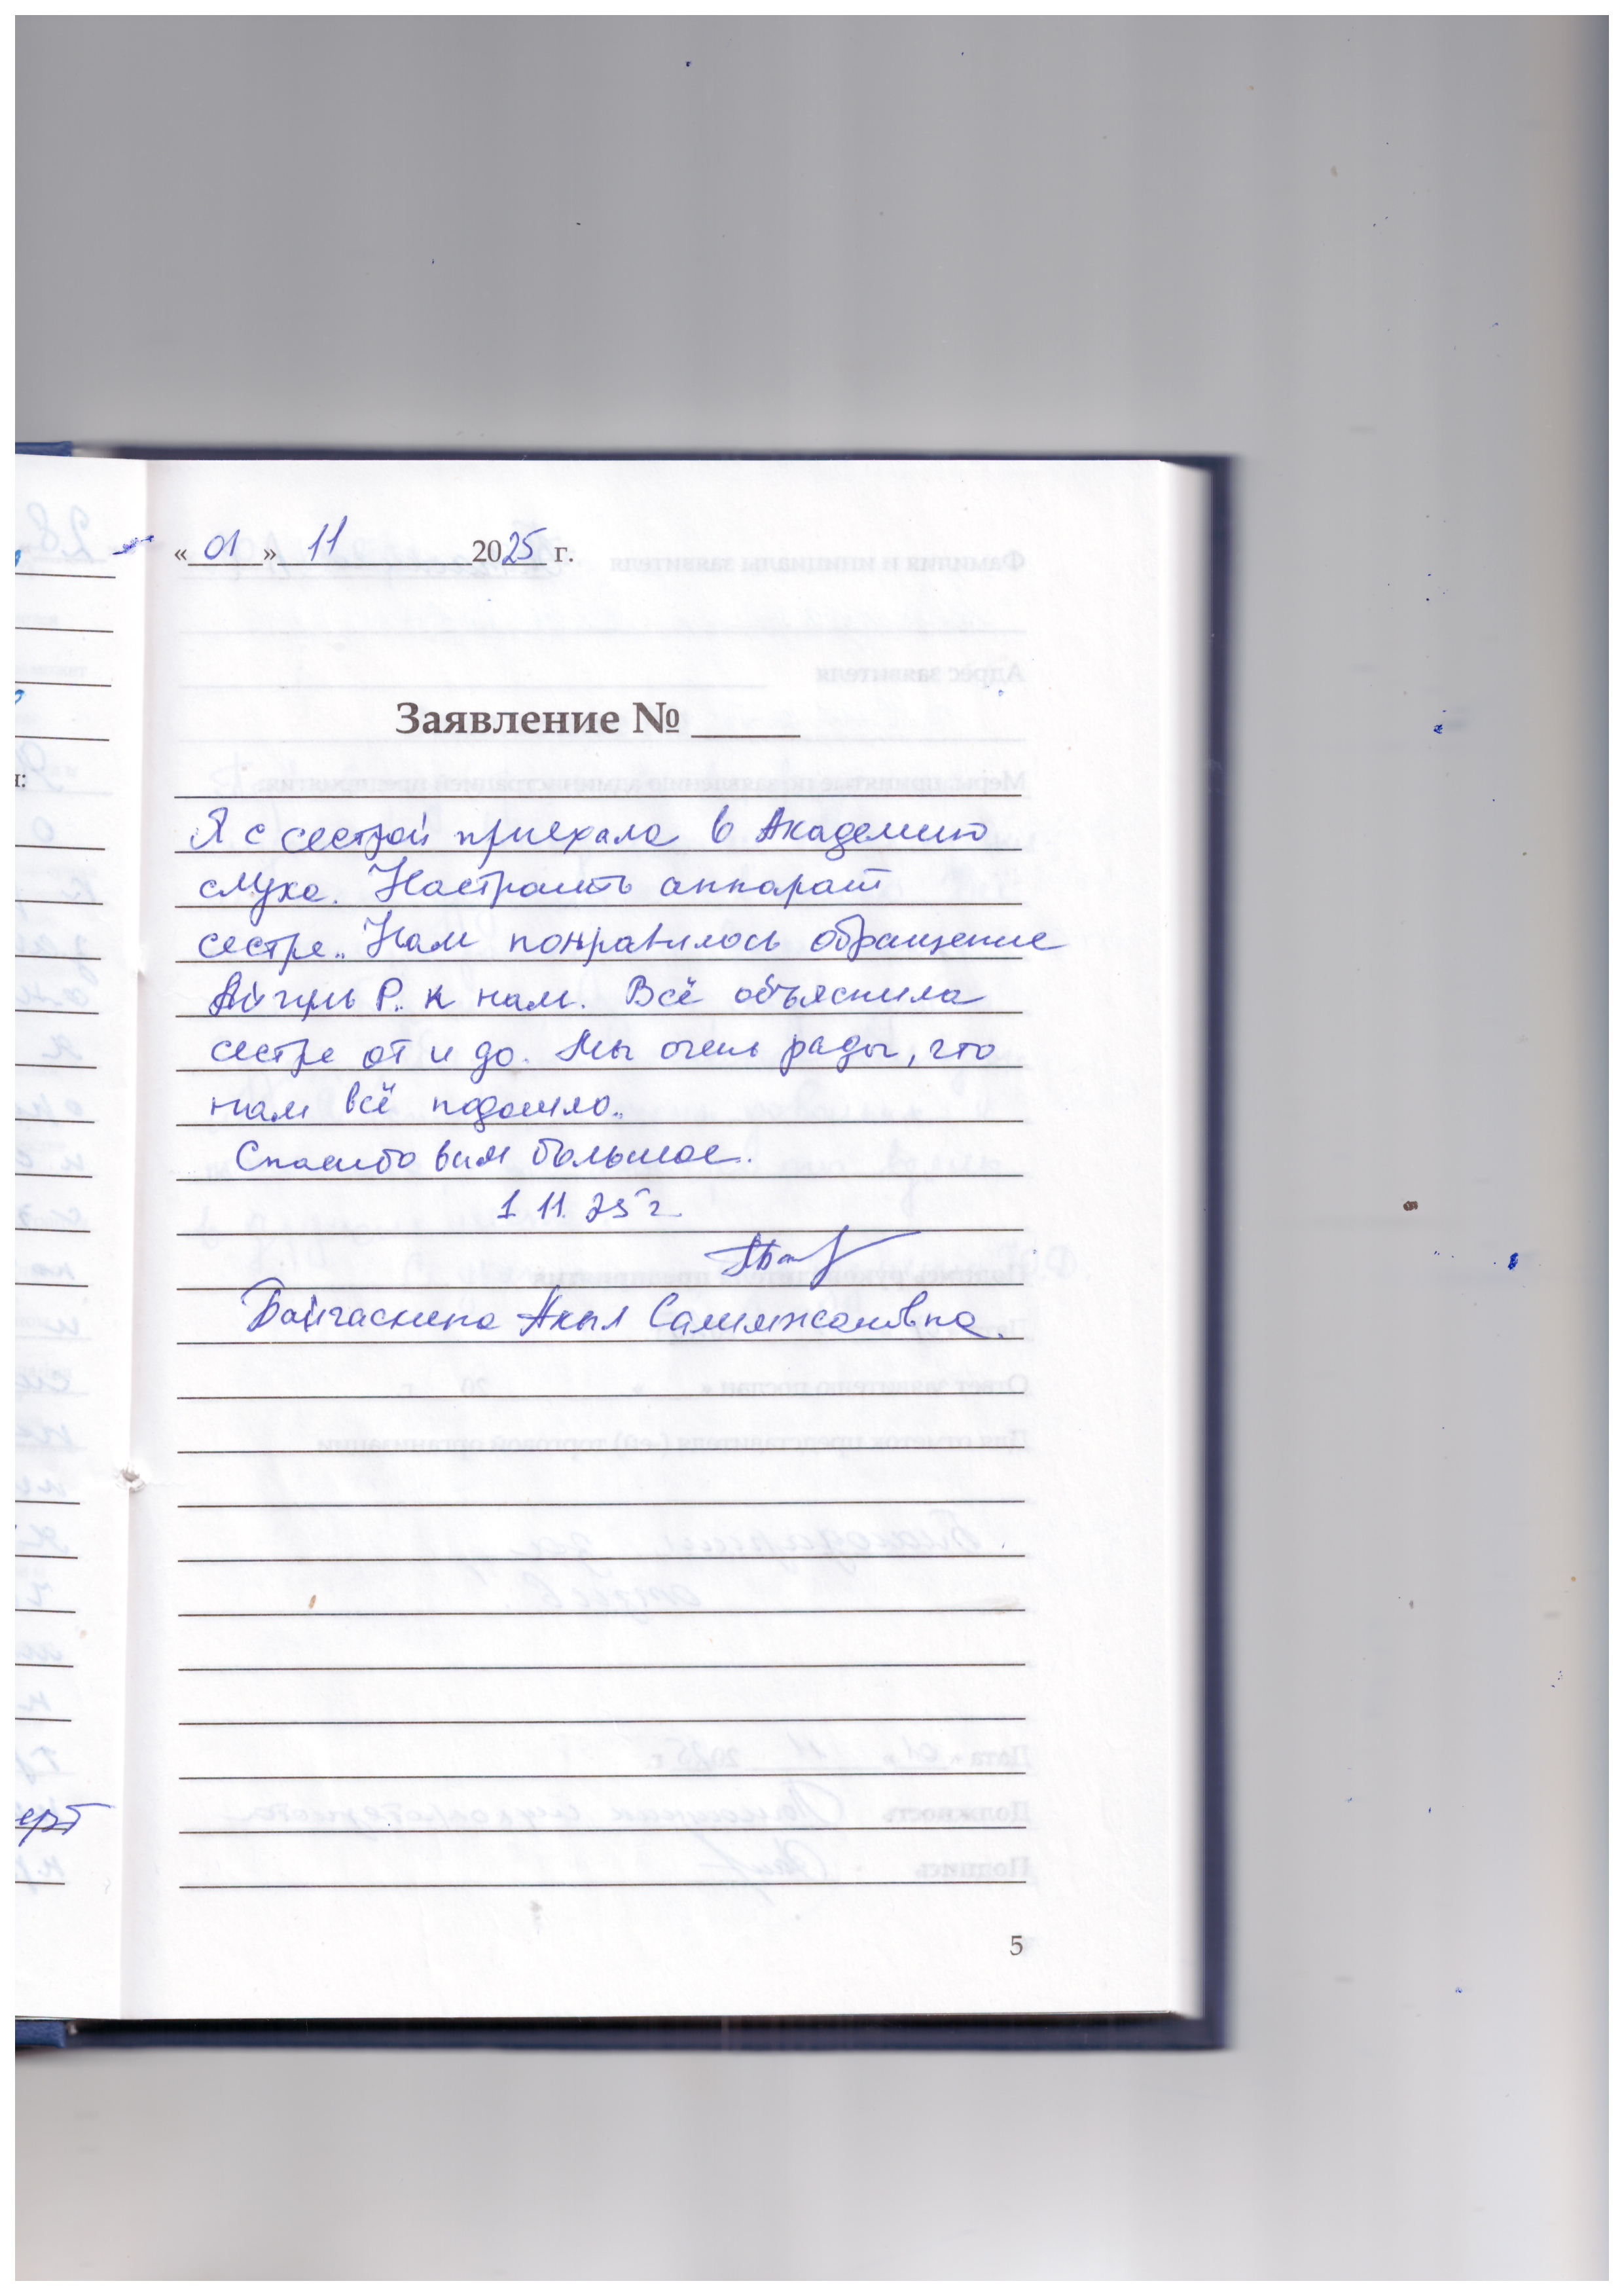 «01» 11 2025 г.
Заявление №
Я с сестрой приехала в Академию
слуха. Настроить аппарат
сестре.. Нам понравилось обращение
Айгуль Р. к нам. Всё объяснила
сестре от и до. Мы очень рады, что
нам всё подошло..
Спасибо вам большое.
1 11. 25 г.
Салимжановна.
5